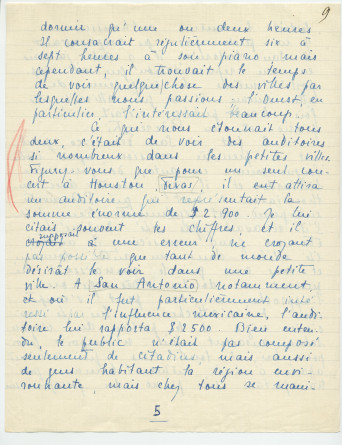 9
dormir qu'une ou deux heures
Il consacrait régulièrement six à
sept heures à son piano mais
cependant, il trouvait le temps
de voir quelque chose des villes par
lesquelles nous passions ; l'Ouest, en
particulier, l'intéressait beaucoup.
Ce que nous étonnait tous
deux, c'était de voir des auditoires
si nombreux dans les petites villes.
Figurez-vous que pour un seul con-
cert à Houston, Texas, il eut attira
un auditoire qui représentait la
somme énorme de $2,900. Je lui
citais souvent les chiffres, et il
supposait
à une erreur, ne croyant
pas que tant de monde
désirât le voir dans une petite
ville. A San Antonio notamment,
et où il fut particulièrement inté
ressé l'influence mexicaine, l'audi-
toire lui rapporta $2500. Bien enten-
du, le public n'était pas composé
seulement de citadins, mais aussi
de gens habitant la région envi-
ronnante, mais chez tous se mani-
5